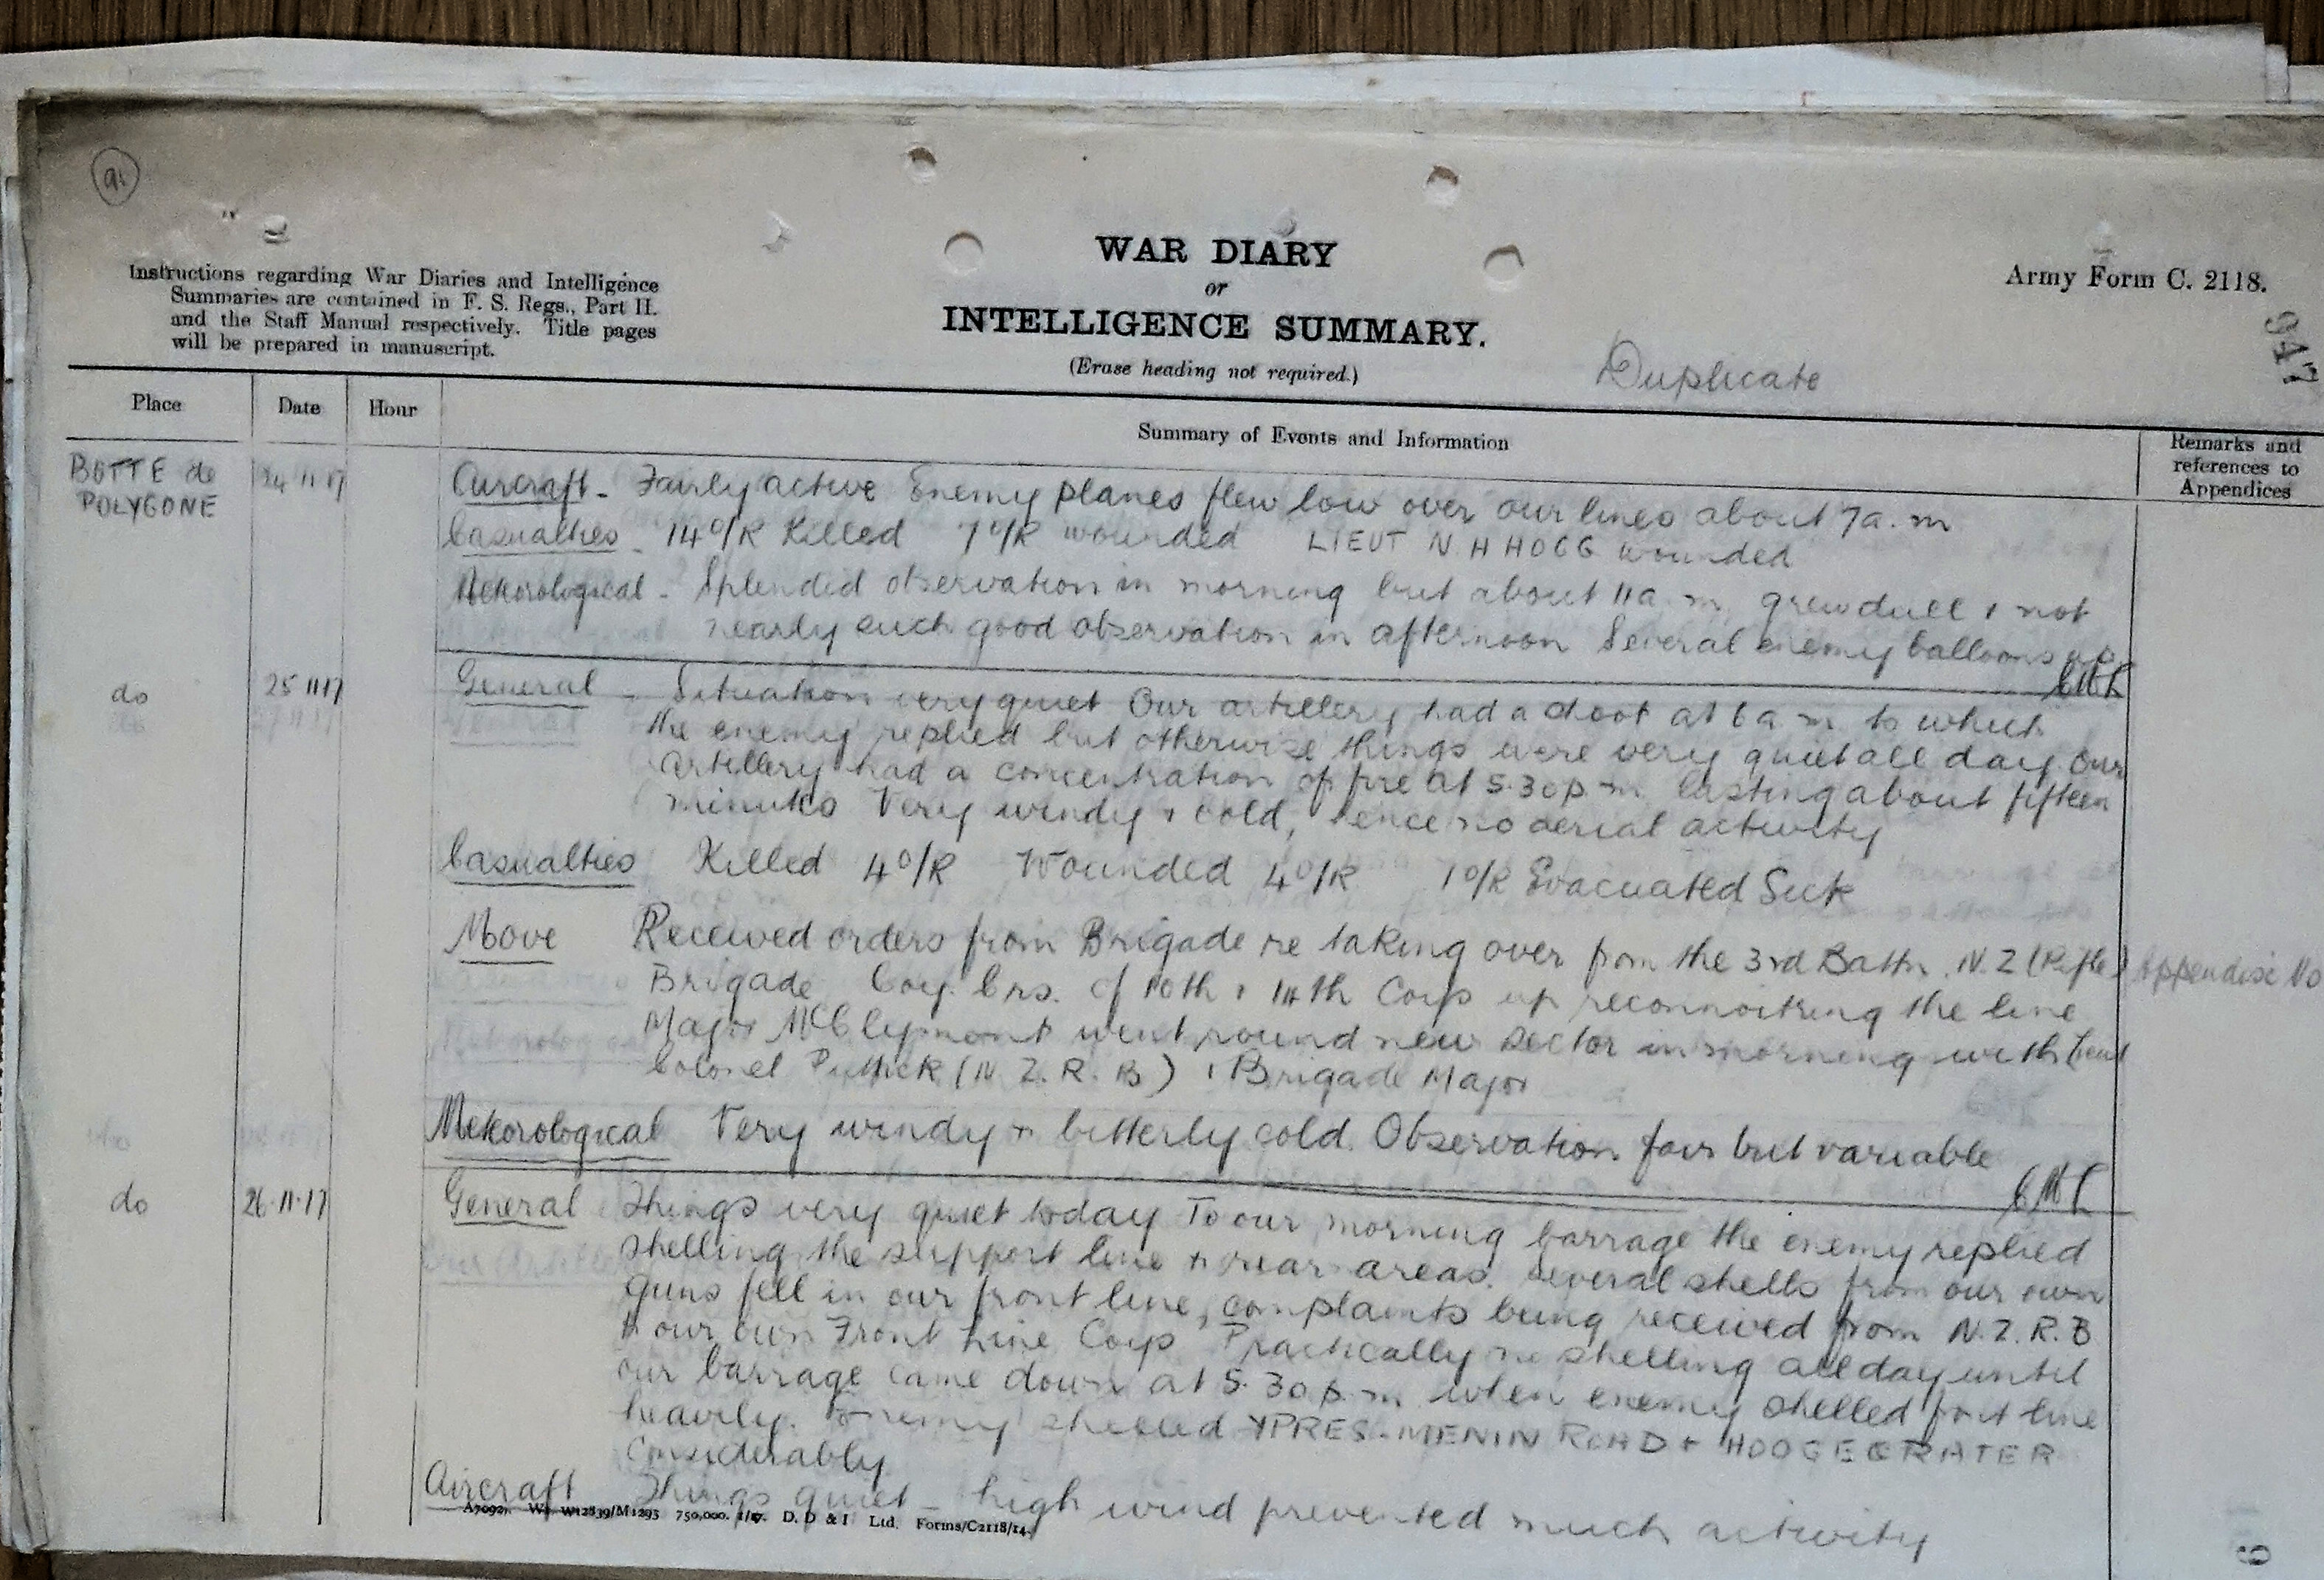 Instructions regarding War Diaries and Intelligence
Summaries are contained in F. S. Regs., Part II.
and the Staff Manual respectively. Title pages
will be prepared in manuscript.
WAR DIARY
or
INTELLIGENCE SUMMARY.
(Erase heading not required.)
Duplicate
Army Form C. 2118.
947
Place
Date
Hour
Summary of Events and Information
Remarks and
references to
Appendices
BUTTE de
POLYGONE
24 11 17
Aircraft - Fairly active Enemy planes flew low over our lines about 7a.m
Casualties - 14 O/R Killed 7 O/R wounded LIEUT N H HOGG wounded
Meteorological - Splendid observation in morning but about 11a.m. grew dull + not
nearly such good observation in afternoon Several enemy balloons up
do
25 11 17
General - Situation very quiet Our artillery had a shoot at 6 a m to which
the enemy replied but otherwise things were very quiet all day. Our
Artillery had a concentration of fire at 5.30p.m. lasting about fifteen
minutes Very windy + cold, hence no aerial activity
Casualties Killed 4 O/R Wounded 4 O/R 1 O/R Evacuated Sick
Move Received orders from Brigade re taking over from the 3rd Battn. N.Z (Rifle)
Appendix No
Brigade Coy. Crs. of 10th + 14th Coys up reconnoitring the line
Major McClymont went round new sector in morning with Lieut
Colonel Puttick (N.Z.R.B) + Brigade Major
Meteorological Very windy + bitterly cold. Observation fair but variable
do
26.11.17
General Things very quiet today To our morning barrage the enemy replied
shelling the support line + rear areas. Several shells from our own
guns fell in our front line, complaints being received from N.Z.R.B
+ our own Front Line Coys Practically no shelling all day until
our barrage came down at 5.30p.m when enemy shelled front line
heavily. Enemy shelled YPRES-MENIN ROAD + HOOGE CRATER
considerably
Aircraft Things quiet - high wind prevented much activity
A7092. Wt. W12839/M1293 750,000. 1/17. D. D & I Ltd. Forms/C2118/14.